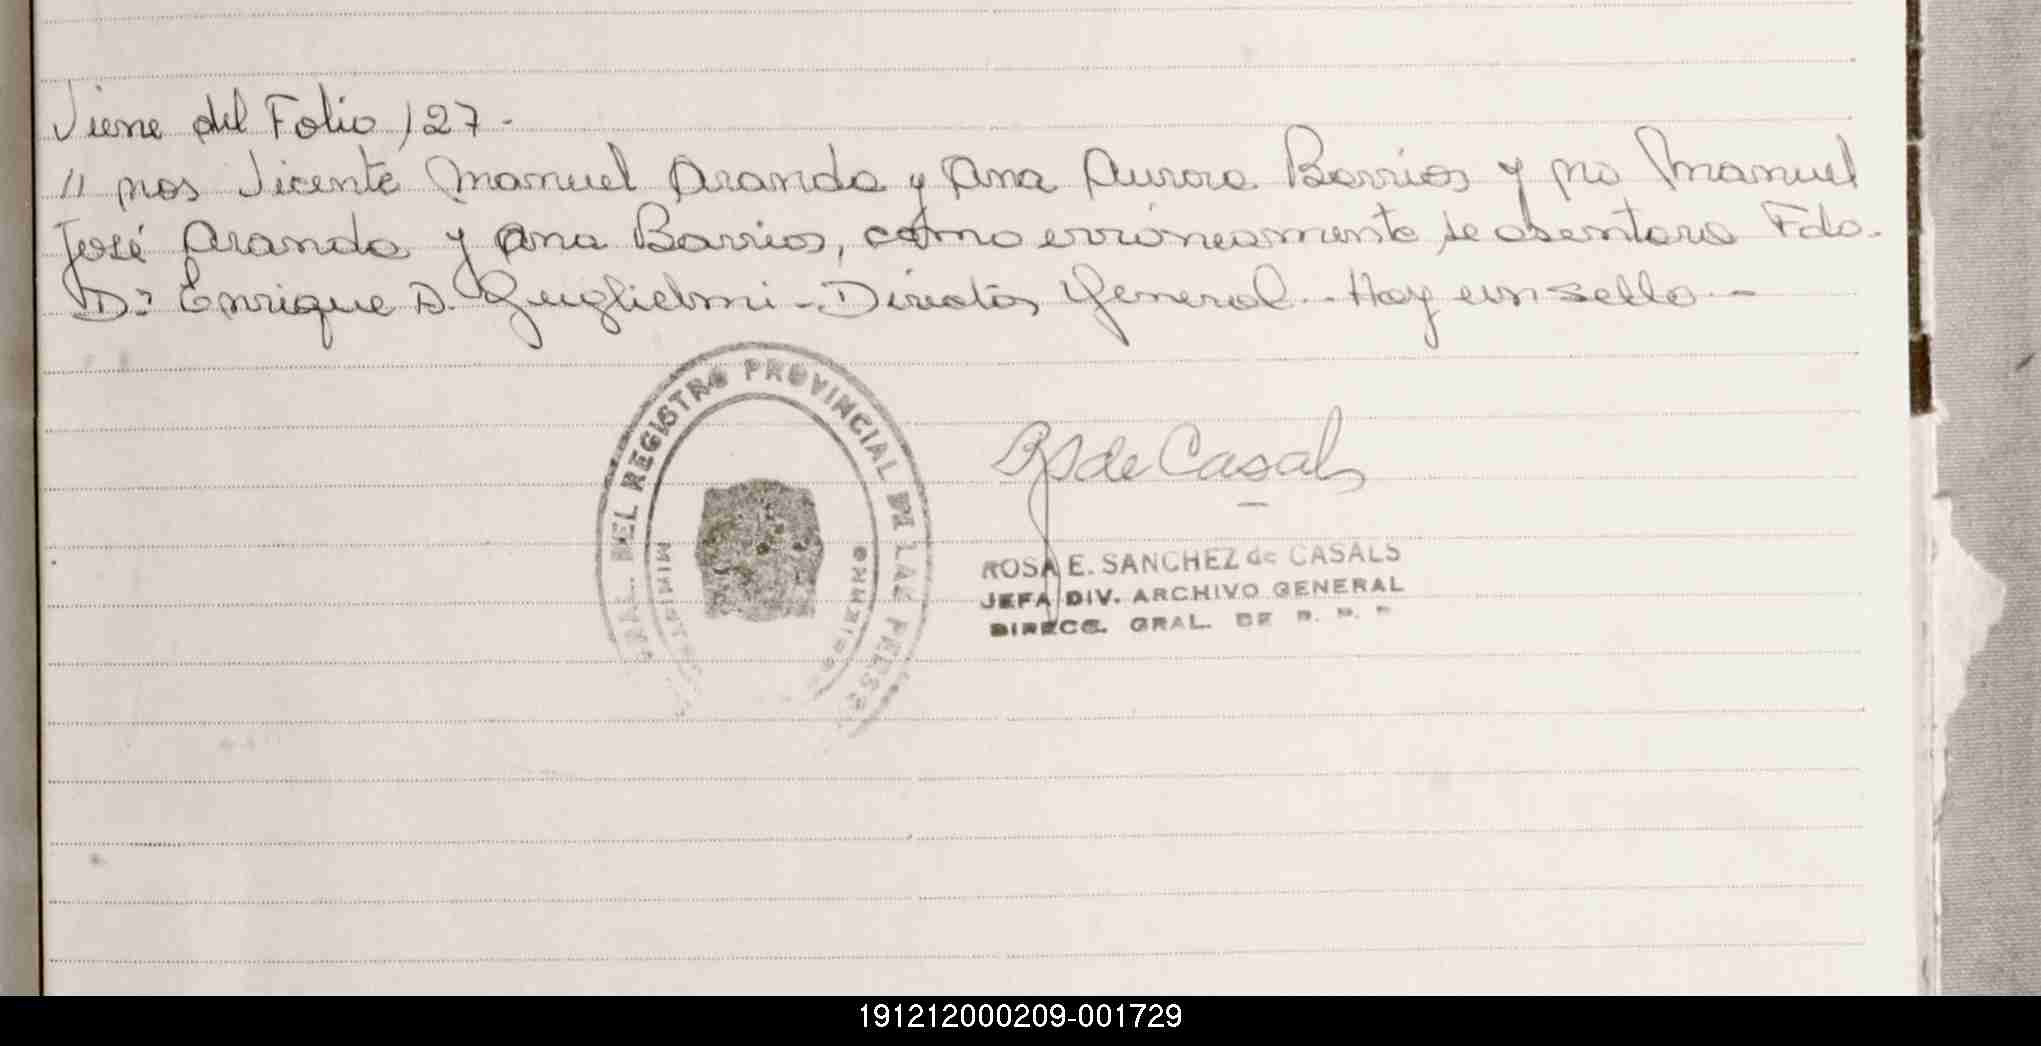 Viene del Folio 127.-
// nos Vicente Manuel Aranda y Ana Aurora Barrios y no Manuel
José Aranda y Ana Barrios, como erróneamente se asentara Fdo.-
Dr. Enrique D. Guglielmi - Director General.- Hay un sello.-
DEL REGISTRO PROVINCIAL DE LAS PERSO
MINISTE
R S de Casals
ROSA E. SANCHEZ de CASALS
JEFA DIV. ARCHIVO GENERAL
DIRECC. GRAL. DE
191212000209-001729